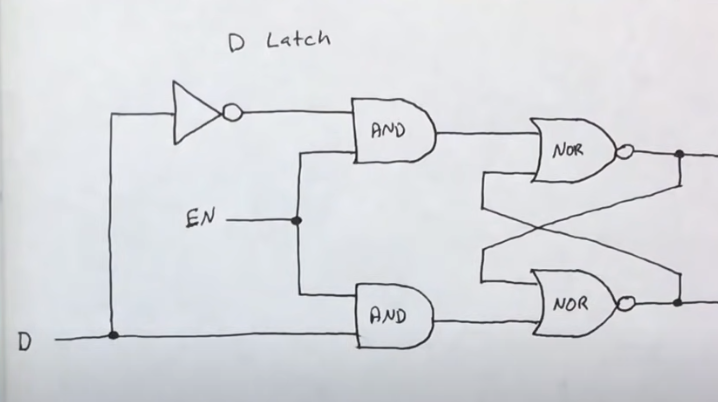 D Latch
AND
NOR
EN
AND
NOR
D